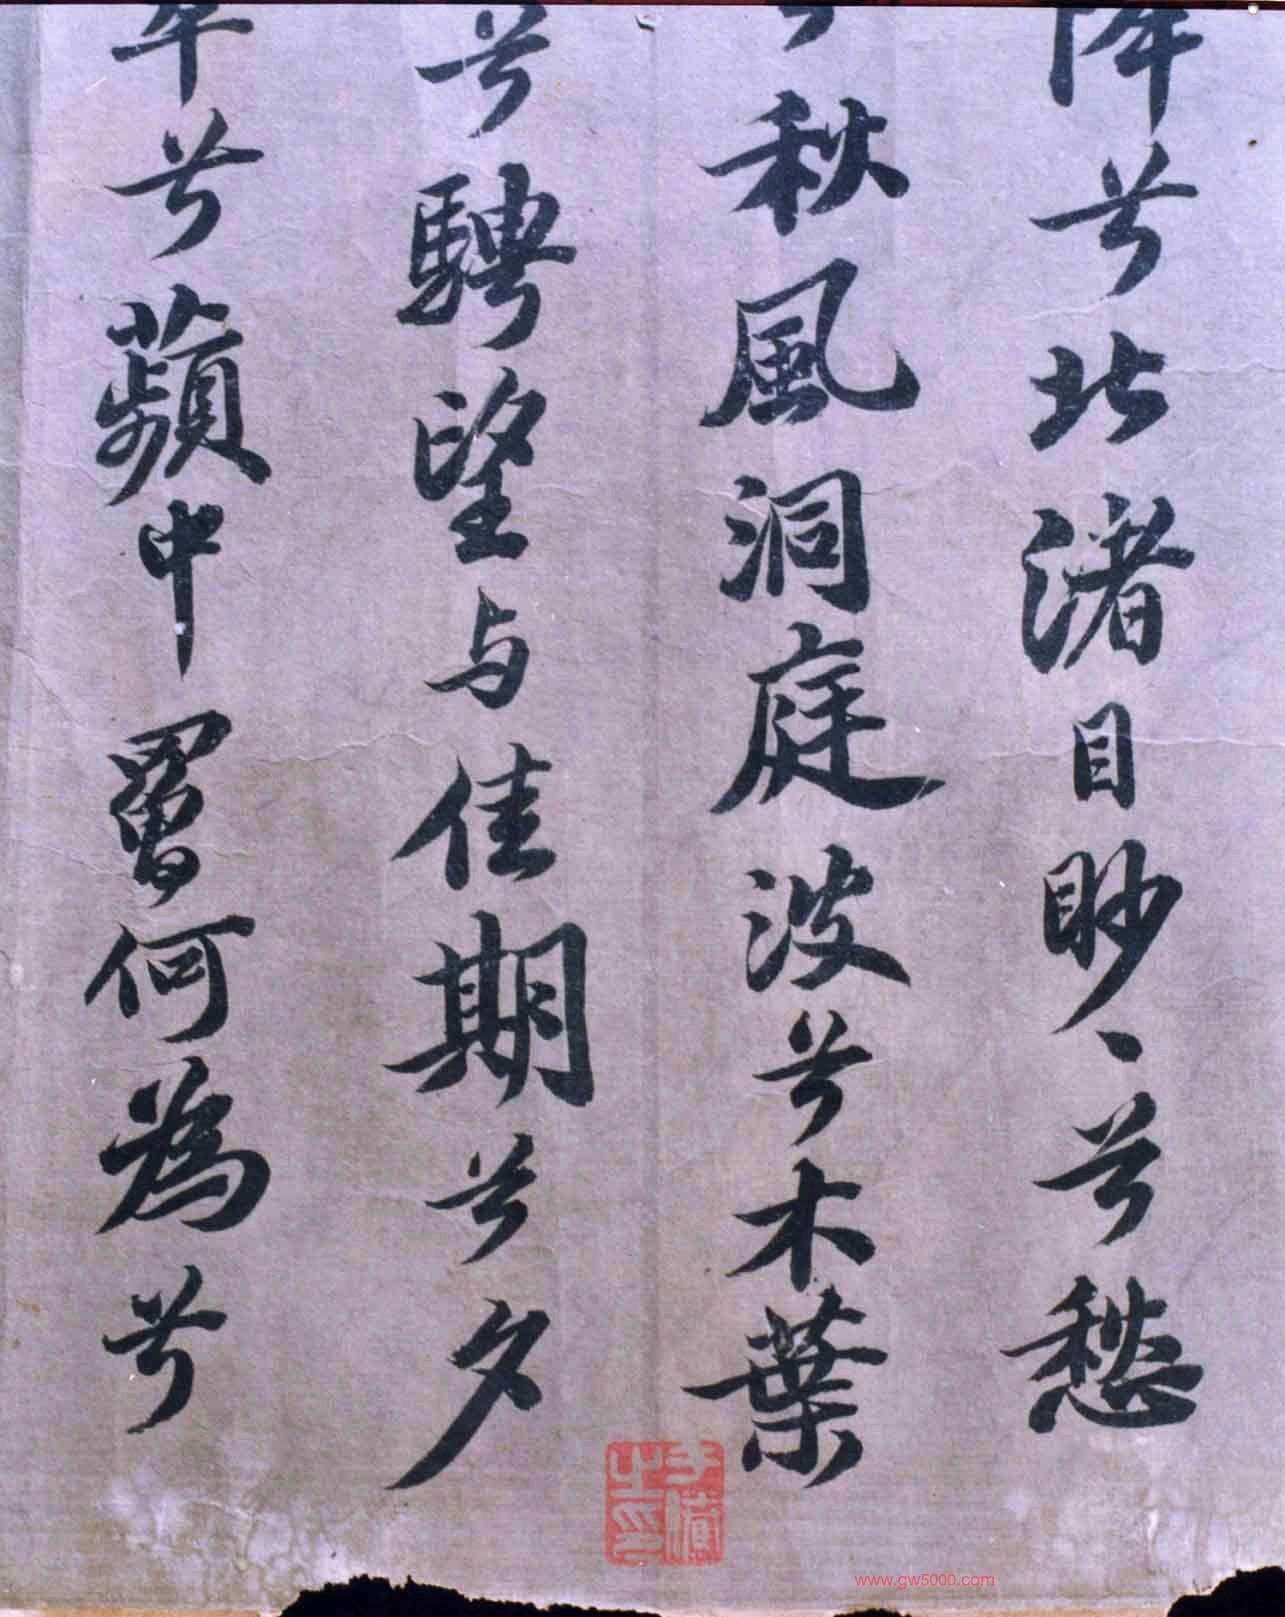 降兮北渚目眇丶兮愁
兮秋風洞庭波兮木葉
兮騁望与佳期兮夕
萃兮蘋中罾何為兮
之印
www.gw5000.com